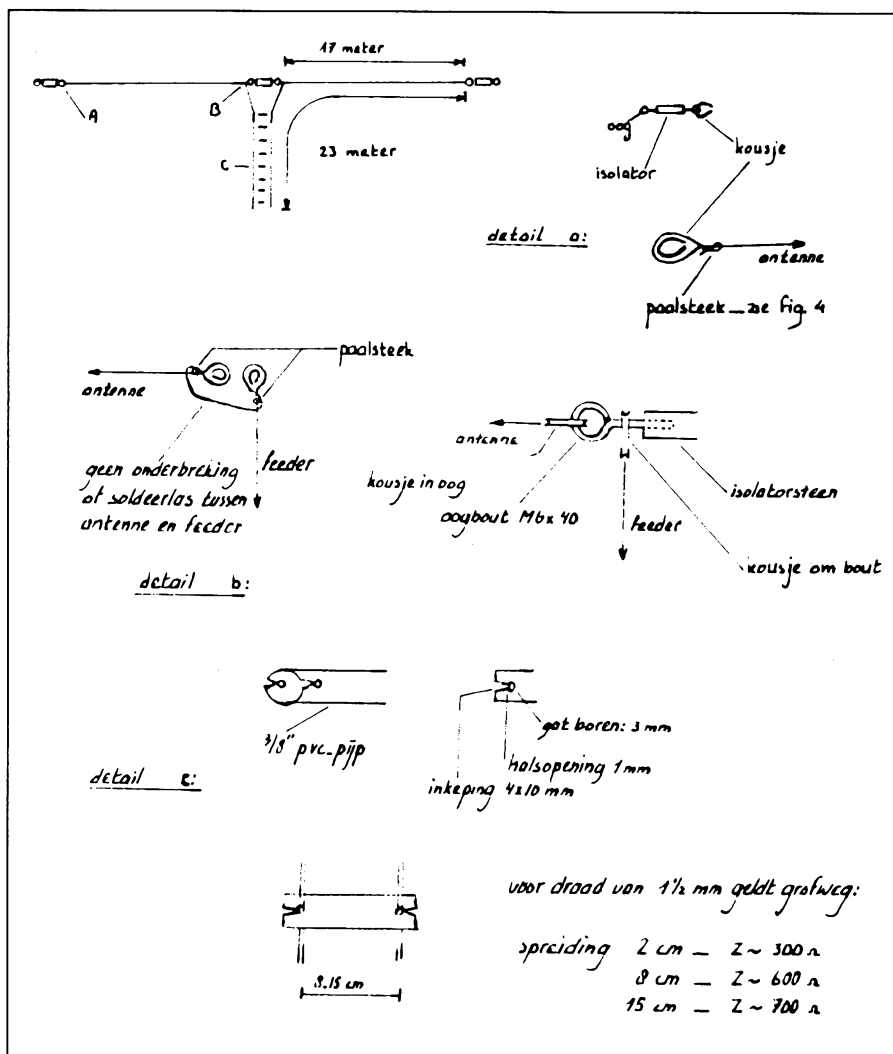 17 meter
A
B
C
23 meter
kousje
isolator
detail a:
antenne
paalsteek _ zie fig. 4
paalsteek
antenne
feeder
geen onderbreking
of soldeerlas tussen
antenne en feeder
antenne
kousje in oog
oogbout M6x40
isolatorsteen
feeder
kousje om bout
detail b:
3/8" pvc-pijp
gat boren: 3 mm
halsopening 1mm
inkeping 4x10 mm
detail c:
8-15 cm
voor draad van 1 1/2 mm geldt grofweg:
spreiding 2 cm _ Z ~ 300 Ω
8 cm _ Z ~ 600 Ω
15 cm _ Z ~ 700 Ω